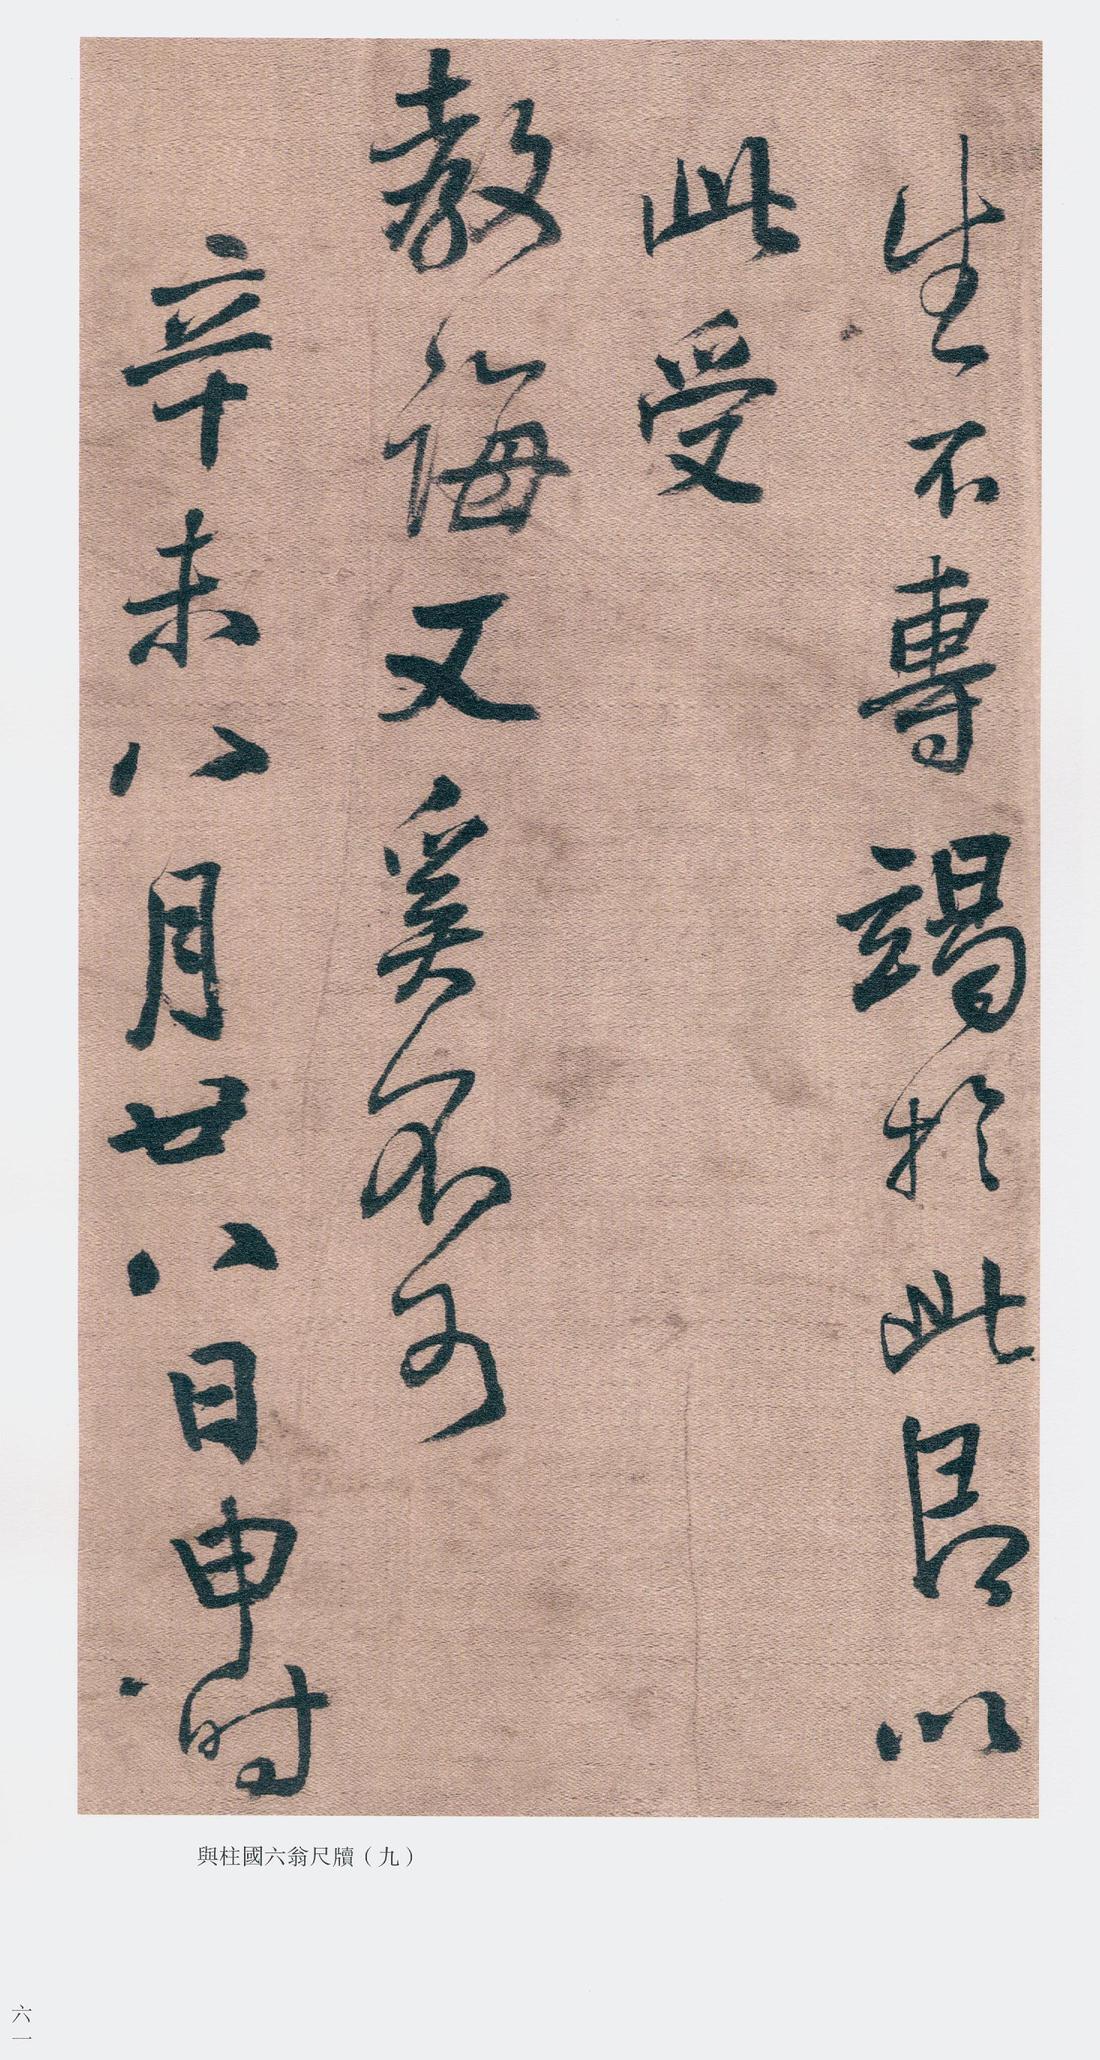 生不專竭於此長以
此受
教誨又奚不可
辛未八月廿八日申时
與柱國六翁尺牘（九）
六一